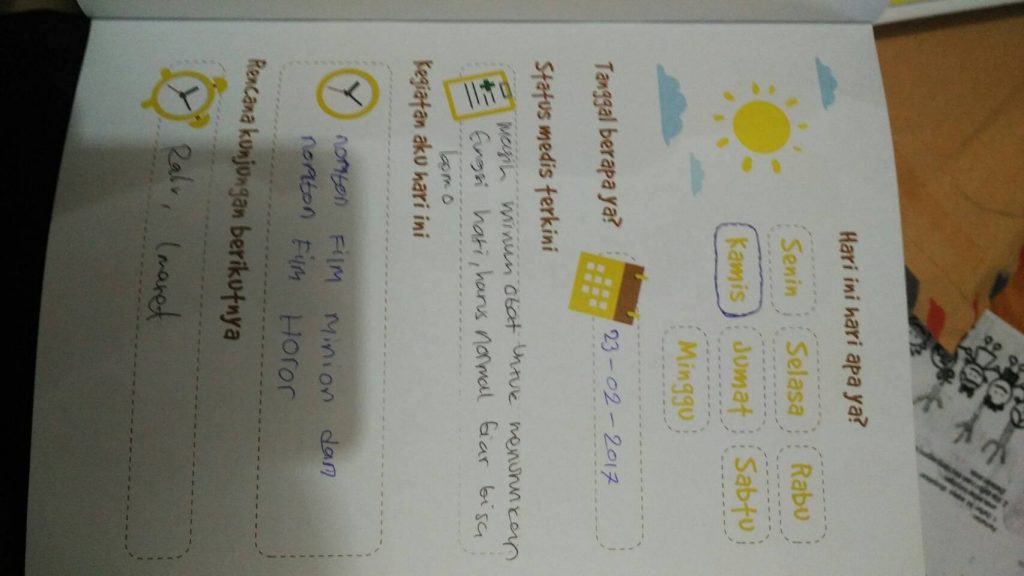 Hari ini hari apa ya?
Senin Selasa Rabu
Kamis Jumat Sabtu
Minggu
Tanggal berapa ya?
23-02-2017
Status medis terkini
masih minum obat untuk menurunkan
fungsi hati, harus normal biar bisa
kemo
Kegiatan aku hari ini
nonton Film Minion dan
nonton Film Horor
Rencana kunjungan berikutnya
Rabu, 1 maret